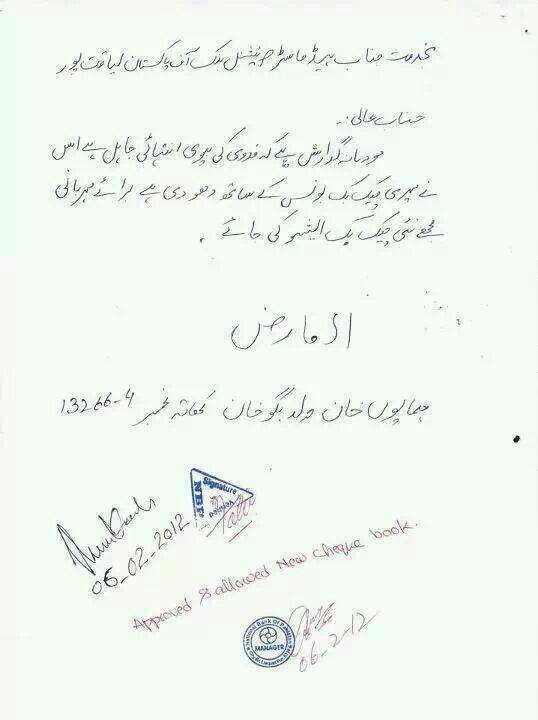 بخدمت جناب ہیڈ ماسٹر صاحب نیشنل بنک آف پاکستان لیاقت پور
جناب عالی:۔
مودبانہ گذارش ہے کہ فدوی کی بیوی انتہائی جاہل ہے اس
نے میری چیک بک بونس کے ساتھ دھو دی ہے برائے مہربانی
مجھے نئی چیک بک ایشو کی جائے ۔
العارض
ہمایوں خان ولد بگو خان کھاتہ نمبر 13266-4
Signature
Verified
NBP
06-02-2012
Approved & allowed New cheque book.
National Bank Of Pakistan
MANAGER
06-2-12